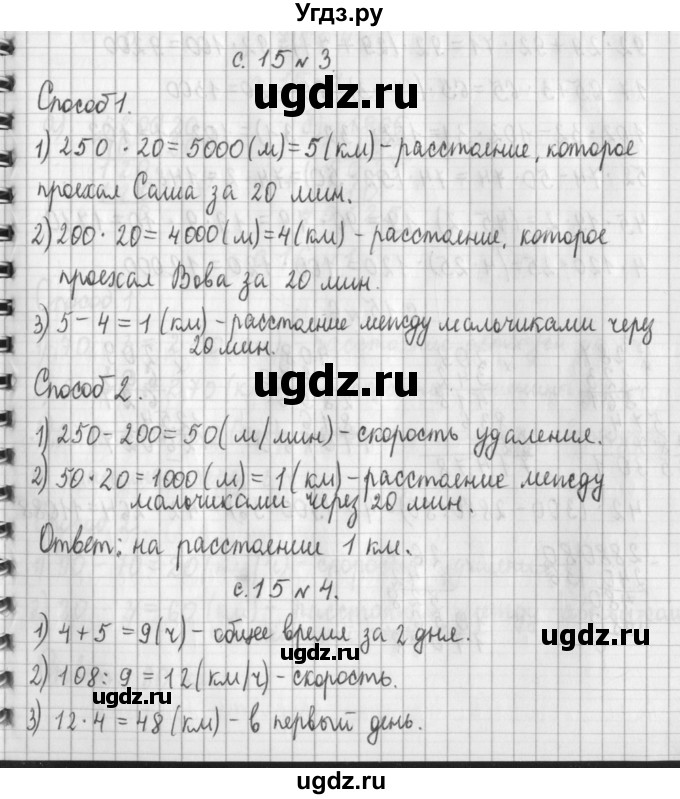 Угдз.ру
с. 15 № 3
ugdz.ru
Способ 1.
1) 250 · 20 = 5000 (м) = 5 (км) - расстояние, которое
проехал Саша за 20 мин.
2) 200 · 20 = 4000 (м) = 4 (км) - расстояние, которое
проехал Вова за 20 мин.
3) 5 - 4 = 1 (км) - расстояние между мальчиками через
20 мин.
ugdz.ru
Способ 2.
1) 250 - 200 = 50 (м/мин) - скорость удаления.
2) 50 · 20 = 1000 (м) = 1 (км) - расстояние между
мальчиками через 20 мин.
ugdz.ru
Ответ: на расстоянии 1 км.
с. 15 № 4.
1) 4 + 5 = 9 (ч) - общее время за 2 дня.
ugdz.ru
ugdz.ru
2) 108 : 9 = 12 (км/ч) - скорость.
3) 12 · 4 = 48 (км) - в первый день.
ugdz.ru
ugdz.ru